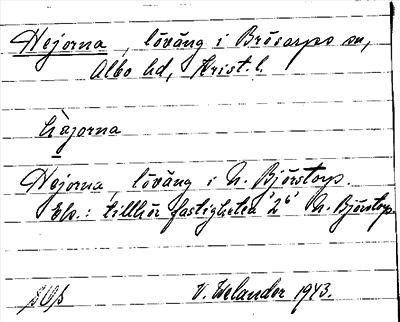 Hejorna, löväng i Brösarps sn,
Albo hd, Krist. l.
hàjorna
Hejorna, löväng i N. Björstorp.
Ek.: tillhör fastigheten '2⁶' N. Björstorp.
V. Welander 1943.